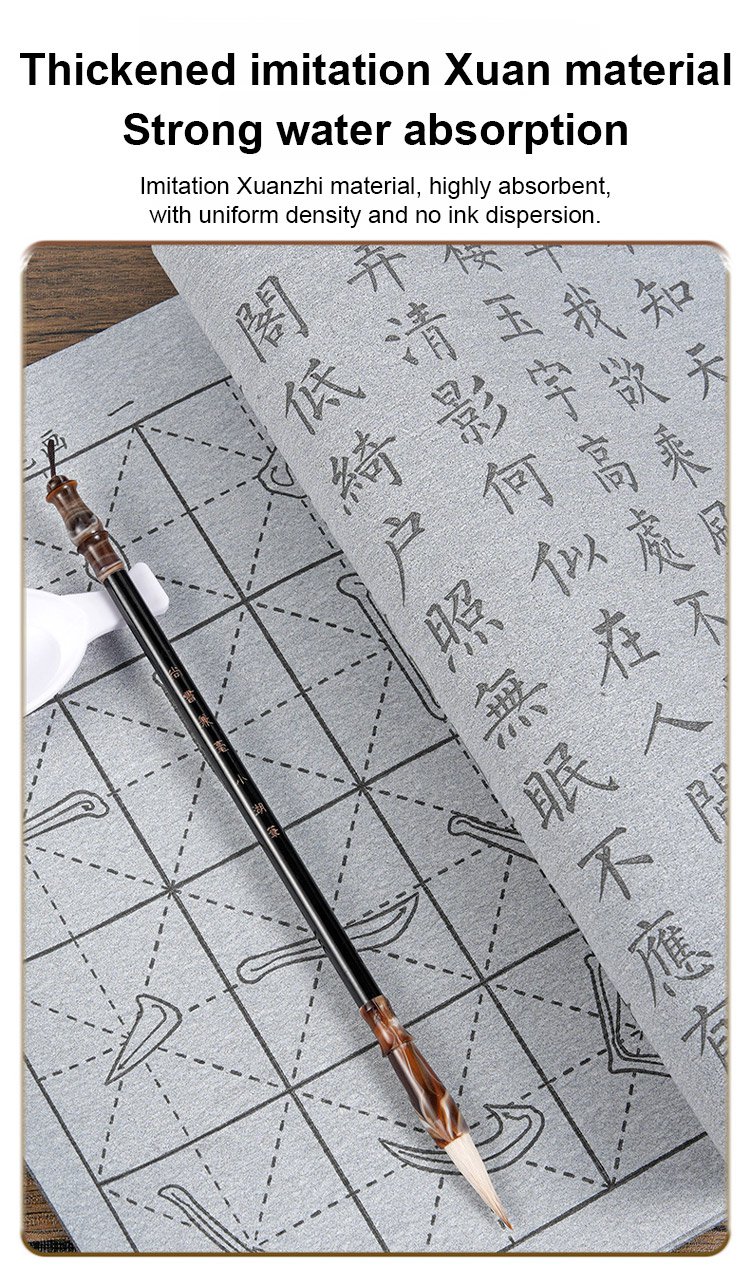 Thickened imitation Xuan material
Strong water absorption
Imitation Xuanzhi material, highly absorbent,
with uniform density and no ink dispersion.
知天
我欲乘風
玉宇高處不
弄清影何似在人間
閣低綺戶照無眠不應有
一